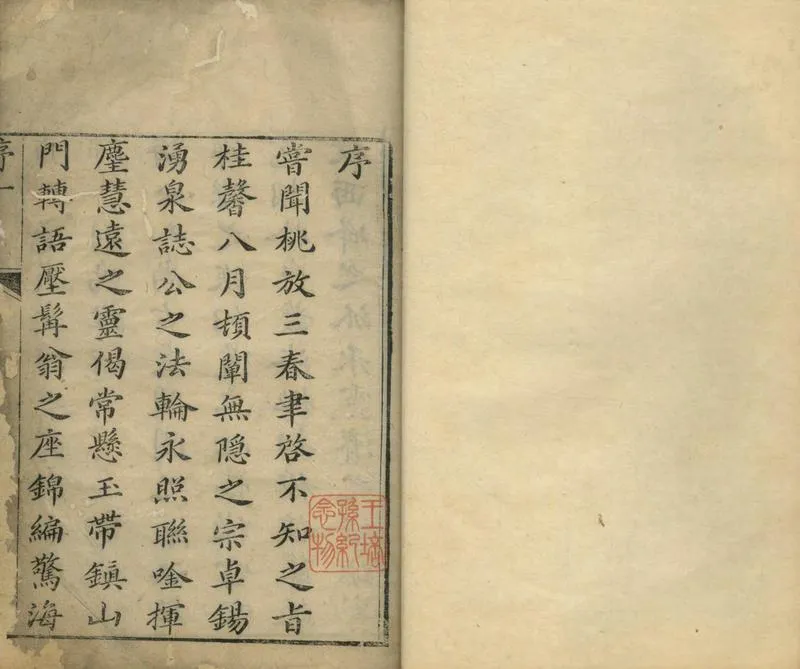 序
嘗聞桃放三春聿啓不知之旨
桂馨八月頓闡無隱之宗卓錫
湧泉誌公之法輪永照聯唫揮
麈慧遠之靈偈常懸玉帶鎮山
門轉語壓髯翁之座錦編驚海
序一
王培孫紀念物